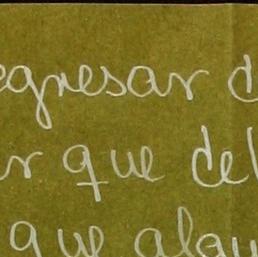 egresar d
r que del
que algu